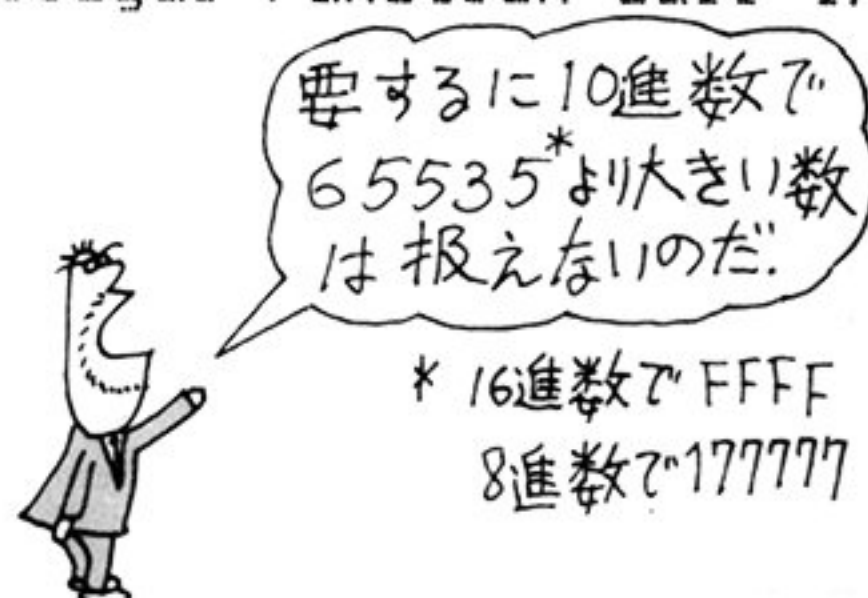 要するに10進数で
65535*より大きい数
は扱えないのだ.
* 16進数でFFFF
8進数で177777